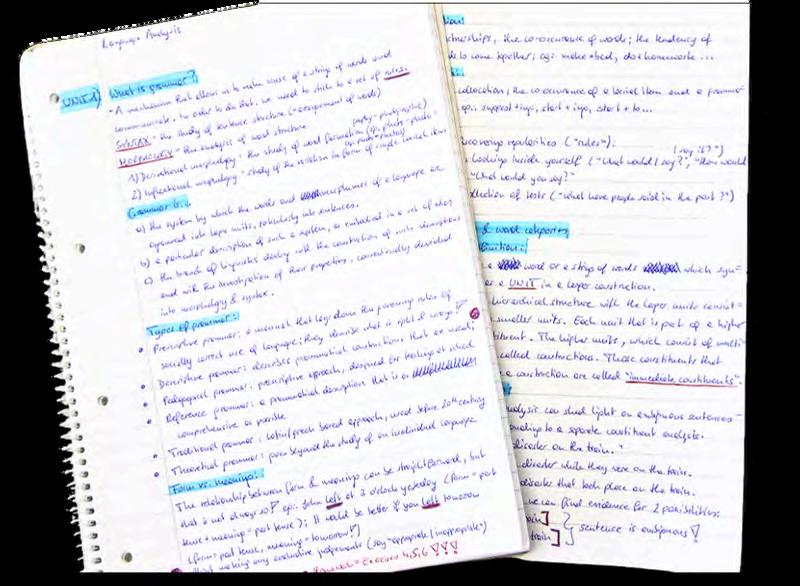 Language Analysis
UNIT 1) What is grammar?:
- A mechanism that allows us to make sense of a string of words and
communicate. In order to do that, we need to stick to a set of rules.
SYNTAX = the study of sentence structure (= arrangement of words)
MORPHOLOGY = the analysis of word structure
1) Derivational morphology = the study of word formation
2) Inflectional morphology = study of the variation in form of single lexical items
Grammar is..
a) the system by which the words and morphemes of a language are
organised into larger units, particularly into sentences.
b) a particular description of such a system, as embodied in a set of rules
c) the branch of linguistics dealing with the construction of such descriptions
and with the investigation of their properties, conventionally divided
into morphology & syntax.
Types of grammar:
Prescriptive grammar: a manual that lays down the governing rules of
socially correct use of language; they devise what is right & wrong!
Descriptive grammar: describes grammatical constructions that are used;
Pedagogical grammar: prescriptive approach, designed for teaching at school
Reference grammar: a grammatical description that is as
comprehensive as possible
Traditional grammar: latin/greek based approach, used before 20th century
Theoretical grammar: goes beyond the study of an individual language
Form vs. meaning:
The relationship between form & meaning can be straightforward, but
that is not always so! eg: John left at 3 o'clock yesterday (form = past
tense + meaning = past tense); It would be better if you left tomorrow
(form = past tense, meaning = tomorrow!)
making any evaluative judgements (say "appropriate / inappropriate")
Exercises 4,5,6 !!!
the co-occurence of words; the tendency of
to come together; eg: make + bed, do + homework ...
collocation; the co-occurence of a lexical item and a grammar
eg: suggest + ing, start + ing, start + to...
regularities ("rules"):
looking inside yourself ("What would I say?", "How would
I say it?")
"What would you say?"
collection of texts ("what have people said in the past?")
& word categories
word or a string of words which
a UNIT in a larger construction.
hierarchical structure with the larger units consist-
smaller units. Each unit that is part of a higher
The higher units, which consist of
called constructions. Those constituents that
a construction are called "immediate constituents".
analysis can shed light on ambiguous sentences
to a separate constituent analysis.
disaster on the train."
disaster while they were on the train.
disaster that took place on the train.
we can find evidence for 2 possibilities:
train]
train]
sentence is ambiguous!